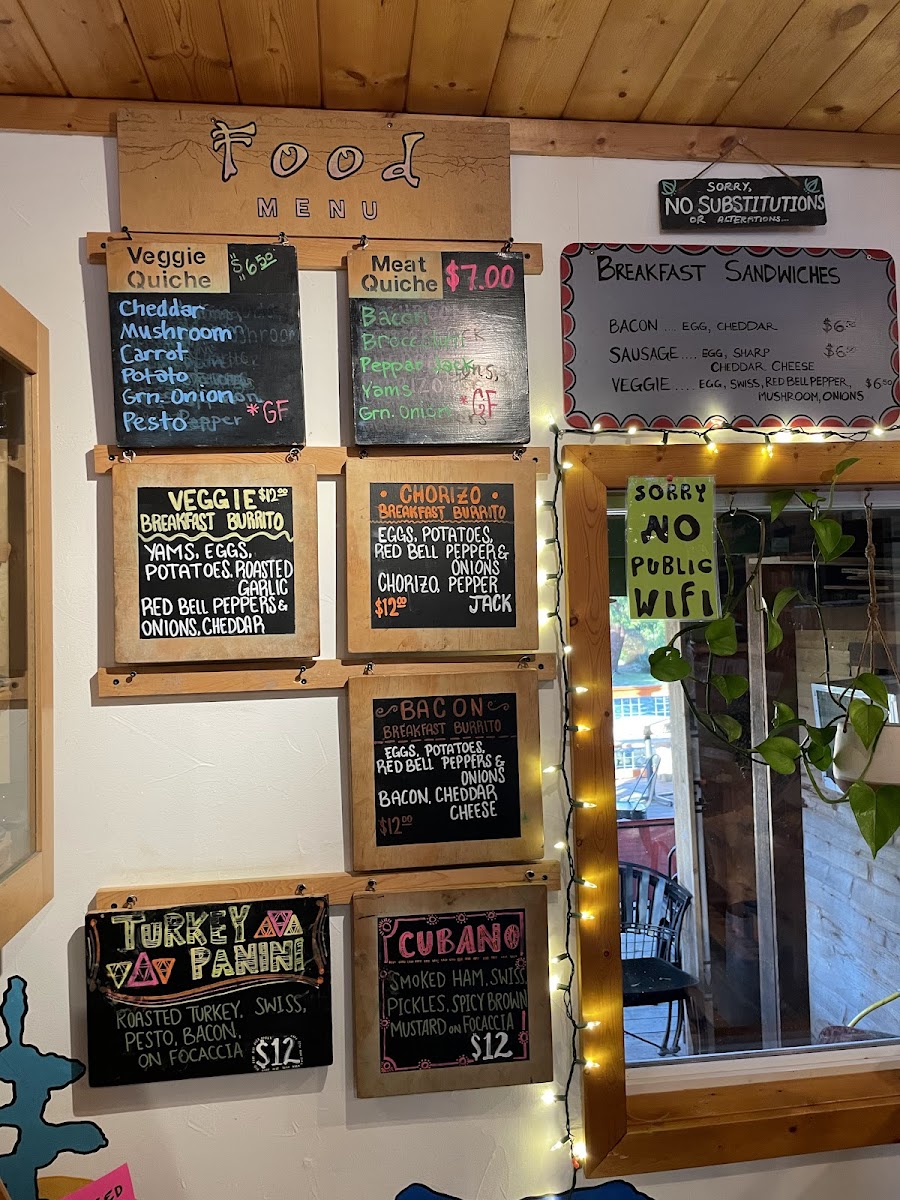 Food
MENU
SORRY,
NO SUBSTITUTIONS
OR ALTERATIONS...
Veggie
Quiche
$6.50
Cheddar
Mushroom
Carrot
Potato
Grn. Onion
Pesto
*GF
Meat
Quiche
$7.00
Bacon
Pepper Jack
Yams
Grn. Onion
*GF
BREAKFAST SANDWICHES
BACON ... EGG, CHEDDAR $6.50
SAUSAGE .... EGG, SHARP $6.50
CHEDDAR CHEESE
VEGGIE .... EGG, SWISS, RED BELL PEPPER, $6.50
MUSHROOM, ONIONS
VEGGIE $12.00
BREAKFAST BURRITO
YAMS, EGGS,
POTATOES, ROASTED
GARLIC
RED BELL PEPPERS &
ONIONS, CHEDDAR
• CHORIZO •
BREAKFAST BURRITO
EGGS, POTATOES,
RED BELL PEPPER &
ONIONS
CHORIZO, PEPPER
JACK
$12.00
SORRY
NO
PUBLIC
WIFI
BACON
BREAKFAST BURRITO
EGGS, POTATOES,
RED BELL PEPPERS &
ONIONS
BACON, CHEDDAR
CHEESE
$12.00
TURKEY
PANINI
ROASTED TURKEY, SWISS,
PESTO, BACON,
ON FOCACCIA
$12
CUBANO
SMOKED HAM, SWISS
PICKLES, SPICY BROWN
MUSTARD ON FOCACCIA
$12